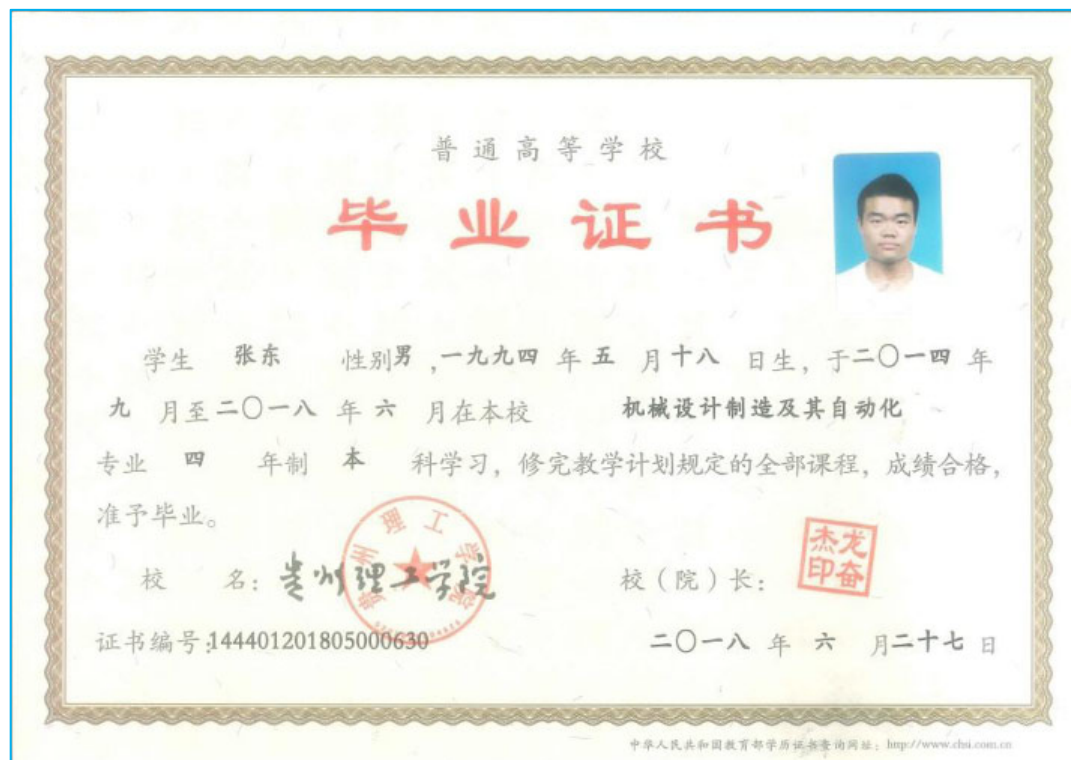 普通高等学校
毕业证书
学生 张东 性别男，一九九四年五月十八日生，于二〇一四年
九月至二〇一八年六月在本校 机械设计制造及其自动化
专业 四 年制 本 科学习，修完教学计划规定的全部课程，成绩合格，
准予毕业。
贵州理工学院
杰龙
印奋
校 名：贵州理工学院 校（院）长：
证书编号:144401201805000630 二〇一八年六月二十七日
中华人民共和国教育部学历证书查询网址：http://www.chsi.com.cn